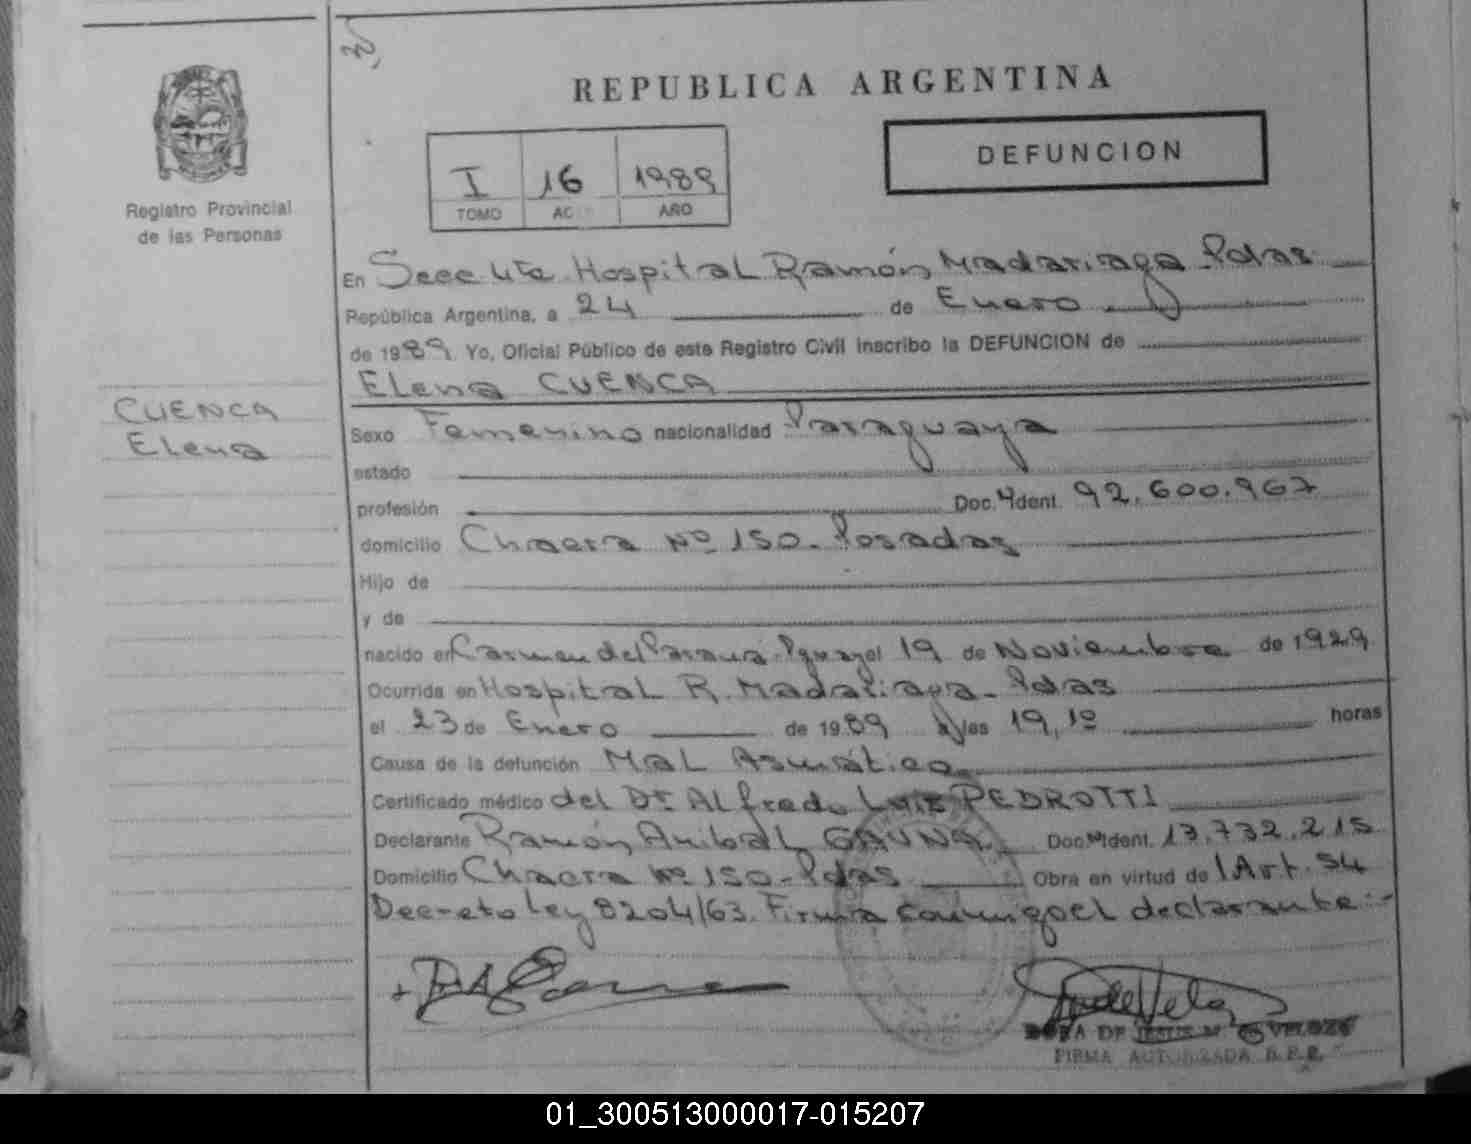 REPUBLICA ARGENTINA
DEFUNCION
I 16 1989
TOMO AC AÑO
Registro Provincial
de las Personas
CUENCA
Elena
En Secc 4ta Hospital Ramón Madariaga Pdas.
República Argentina, a 24 de Enero
de 1989. Yo, Oficial Público de este Registro Civil inscribo la DEFUNCION de
Elena CUENCA
Sexo Femenino nacionalidad Paraguaya
estado
profesión Doc. Ident. 92.600.967
domicilio Chacra Nº 150- Posadas
Hijo de
y de
nacido en Carmen del Parana-Pguay el 19 de Noviembre de 1929
Ocurrida en Hospital R. Madariaga- Pdas
el 23 de Enero de 1989 a las 19,10 horas
Causa de la defunción Mal Asmático
Certificado médico del Dr Alfredo Luis PEDROTTI
Declarante Ramón Anibal GAUNA Doc. Ident. 13.732.215
Domicilio Chacra Nº 150-Pdas Obra en virtud del Art. 54
Decreto Ley 8204/63. Firma conmigo el declarante:-
DORA DE JESUS M. VELOZO
FIRMA AUTORIZADA
01_300513000017-015207